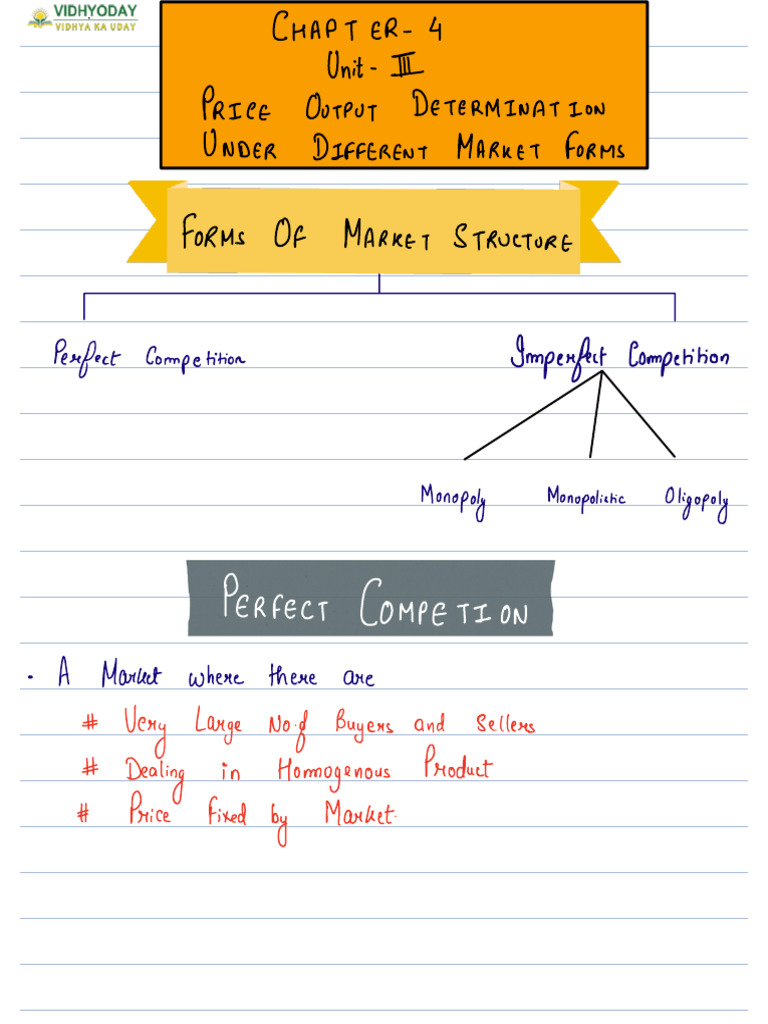 VIDHYODAY
VIDHYA KA UDAY
CHAPTER- 4
Unit- III
PRICE OUTPUT DETERMINATION
UNDER DIFFERENT MARKET FORMS
FORMS OF MARKET STRUCTURE
Perfect Competition
Imperfect Competition
Monopoly Monopolistic Oligopoly
PERFECT COMPETION
. A Market where there are
# Very Large No.of Buyers and Sellers
# Dealing in Homogenous Product
# Price fixed by Market.